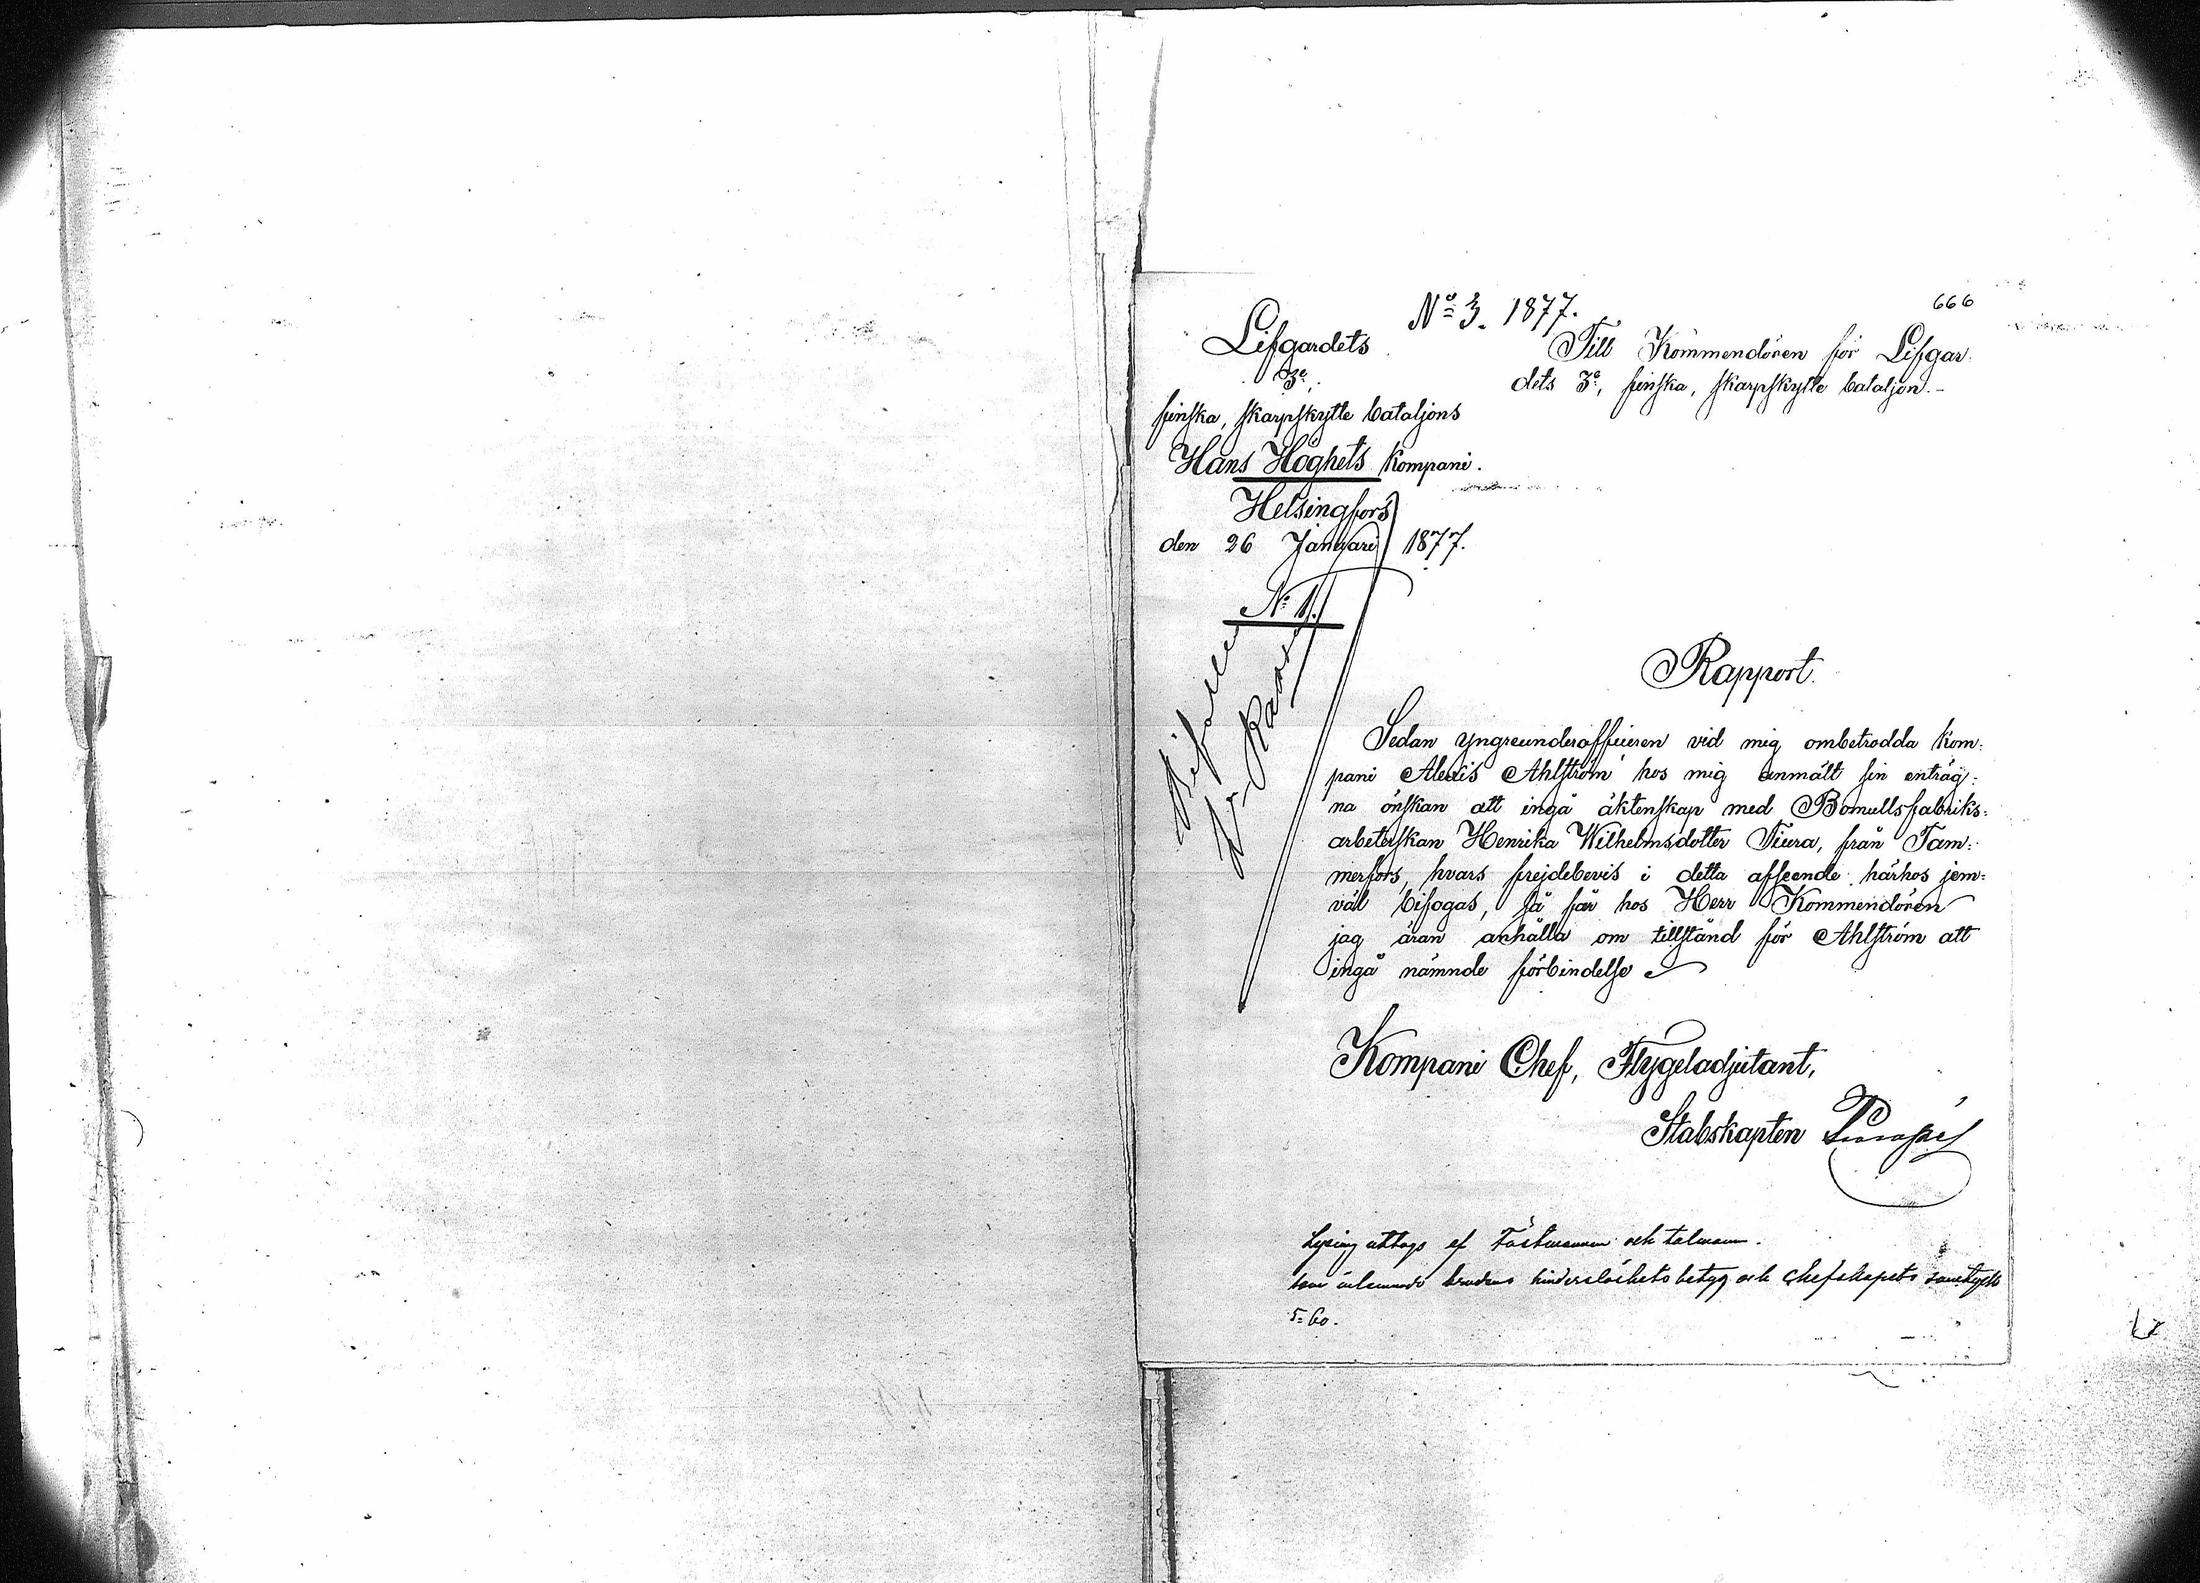 666
No 3. 1877.
Lifgardets
3e,
finska, skarpskytte bataljons
Hans Höghets kompani.
Helsingfors
den 26 Januari 1877.
No 1.
Bifalles
Till Kommendören för Lifgar-
dets 3e, finska, skarpskytte bataljon.-
Rapport.
Sedan yngreunderofficieren vid mig ombetrodda kom-
pani Alexis Ahlström hos mig anmält sin enträg-
na önskan att ingå äktenskap med Bomullsfabriks-
arbeterskan Henrika Wilhelmsdotter Tiura, från Tam-
merfors, hvars frejdebevis i detta afseende härhos jem-
väl bifogas, så får hos Herr Kommendören
jag äran anhålla om tillstånd för Ahlström att
ingå nämnde förbindelse
Kompani Chef, Flygeladjutant,
Stabskapten
Lysing uttogs af Fästmannen och talman.
som inlemnade brudens hinderslöshets betyg och chefskapets samtycke
5= 60.